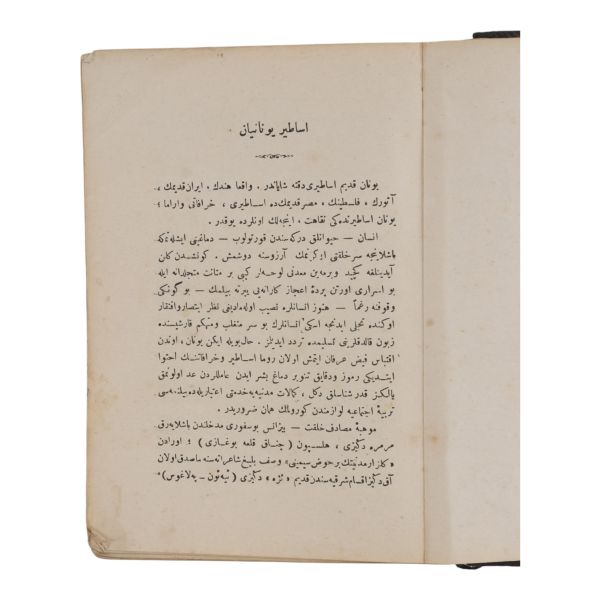 اساطیر یونانیان
یونان قدیم اساطیری دقته شایاندر . واقعا هندك ، ایران قدیمك ،
آثورك ، فلسطینك ، مصر قدیمك ده اساطیری ، خرافاتی وارا ما ؛
یونان اساطیرنده کی نقاهت ، اینجه لك اونلرده یوقدر .
انسان — حیوانلق درکه سندن قورتولوب — دماغینی ایشله تمکه
باشلاینجه سر خلقتی اوکرنمك آرزوسنه دوشمش . کونشدن کلن
آیدینلغه کچید ویرمه ین معدنی لوحه لر کبی بر متانت متجلدانه ایله
بو اسراری اورتن پردۀ اعجاز کارانه یی ییرته بیلمك — بو کونکی
وقوفنه رغماً — هنوز انسانلره نصیب اوله مادیغنی نظر
اوکنده تجلی ایدنجه اسکی انسانلرك بو سر متغلب و متهکم قارشیسنده
زبون قالدقلرینی تسلیمده تردد ایدیلمز . حال بویله ایکن یونان ، اوندن
اقتباس فیض عرفان ایتمش اولان روما اساطیر و خرافاتنك احتوا
ایتدیکی رموز و دقایق تنویر دماغ بشر ایدن عاملاردن عد اولونمق
یالکز قدرشناسلق دکل ، کمالات مدنیه یه خدمتی اعتباریله ده بیلنمه سی
تربیۀ اجتماعیه لوازمندن کورولمك همان ضروریدر .
موهبۀ مصادف خلقت — بیزانس بوسفوری مدخلندن باشلایه رق
مرمره دکیزی ، هلسپون ( چناق قلعه بوغازی ) ؛ اورادن
« کلزار مدنیتك بر حوض سیمینی » وصف بلیغ شاعرانه سنه ماصدق اولان
آق دکیز اقسام شرقیه سندن قدیم « اژه » دکیزی ( ئیه ئون - په لاغوس )